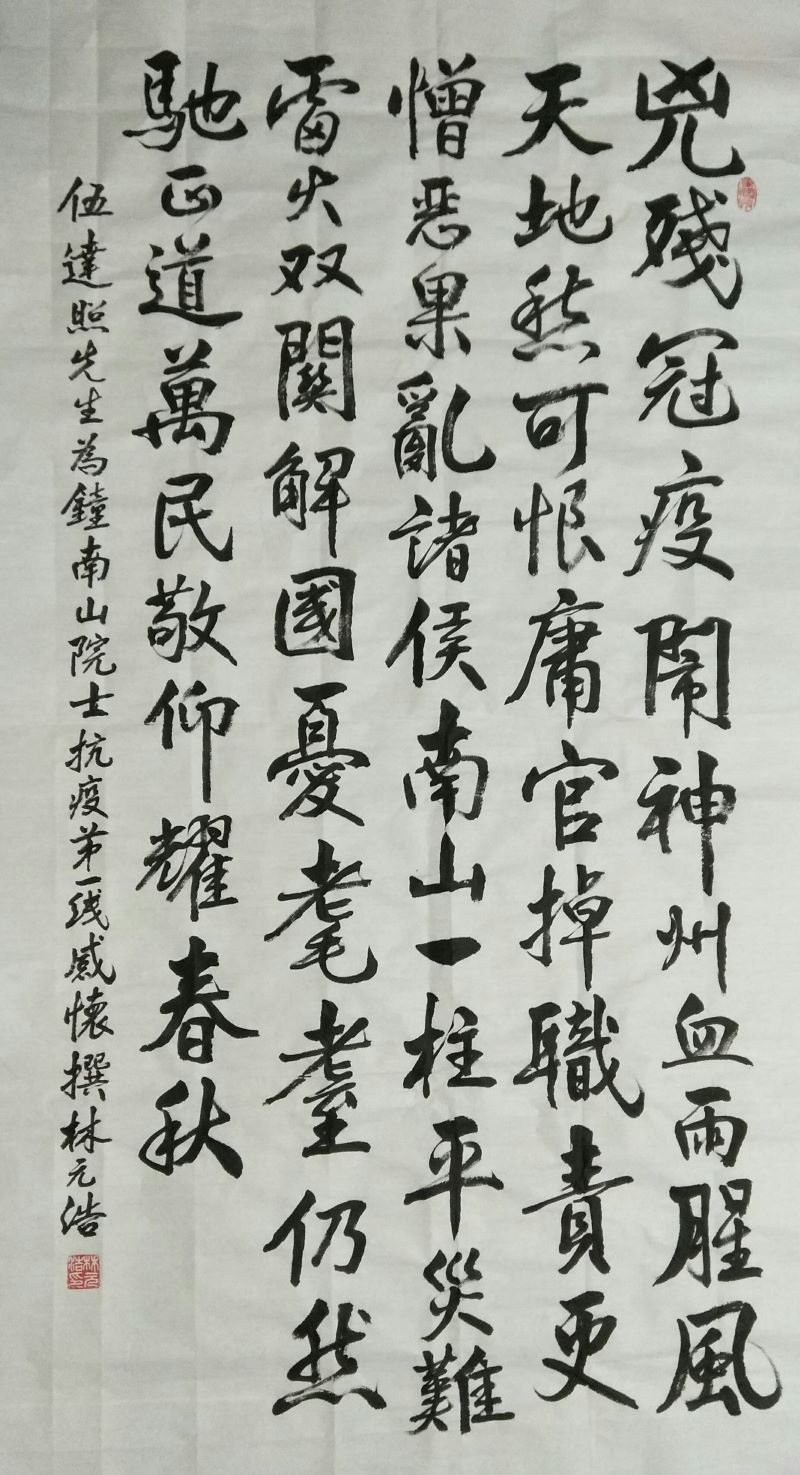 兇殘冠疫鬧神州血雨腥風
天地愁可恨庸官掉職責更
憎惡果亂諸侯南山一柱平災難
雷火双關解國憂耄耋仍然
馳正道萬民敬仰耀春秋
伍達照先生為鐘南山院士抗疫第一线感懷撰林元浩